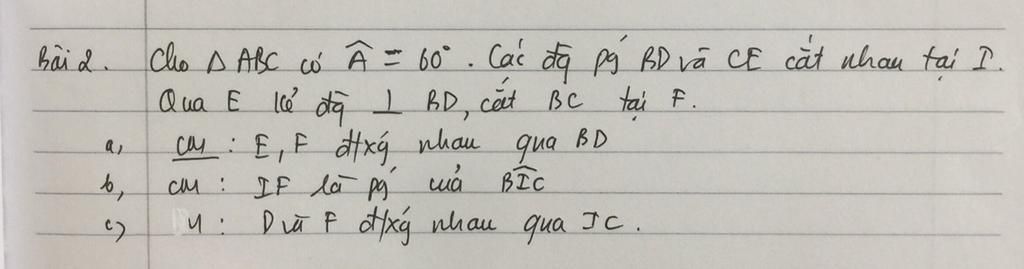 Bài 2. Cho Δ ABC có Â = 60°. Các đg pg BD và CE cắt nhau tại I.
Qua E kẻ đg ⊥ BD, cắt BC tại F.
a, CM : E, F đ/xg nhau qua BD
b, CM : IF là pg của BIC
c) M : D và F đ/xg nhau qua IC.